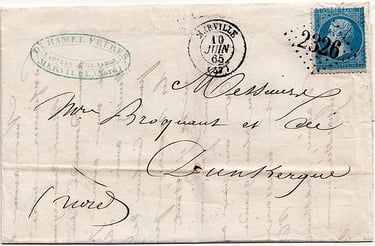 DUHAMEL FRÈRES
MERVILLE (Nord)
MERVILLE
10
JUIN
65
(57)
2326
Messieurs
Broquant et Cie
Dunkerque
(Nord)